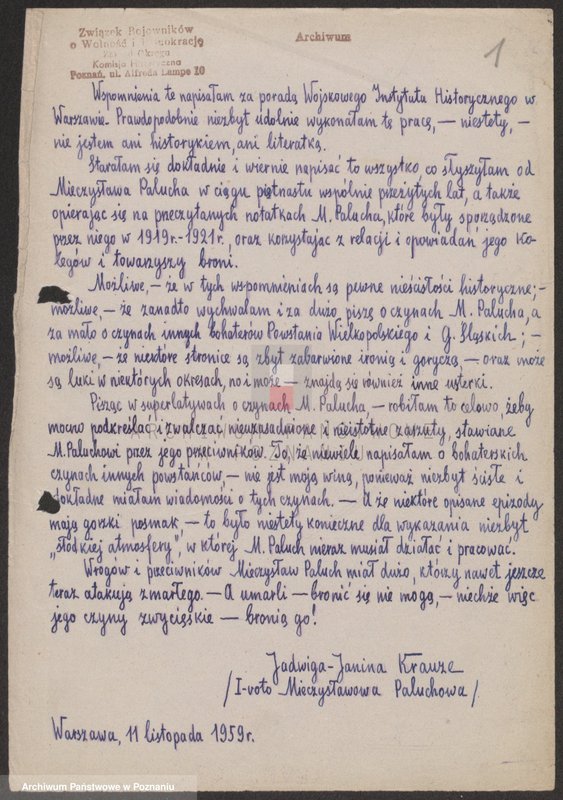 Związek Bojowników
o Wolność i Demokrację
Zarząd Okręgu
Komisja Historyczna
Poznań, ul. Alfreda Lampe 10
Archiwum
1
Wspomnienia te napisałam za poradą Wojskowego Instytutu Historycznego w
Warszawie. Prawdopodobnie niezbyt udolnie wykonałam tę pracę, — niestety, —
nie jestem ani historykiem, ani literatką.
Starałam się dokładnie i wiernie napisać to wszystko, co słyszałam od
Mieczysława Palucha w ciągu piętnastu wspólnie przeżytych lat, a także
opierając się na przeczytanych notatkach M. Palucha, które były sporządzone
przez niego w 1919r.-1921r., oraz korzystając z relacji i opowiadań jego ko-
legów i towarzyszy broni.
Możliwe, — że w tych wspomnieniach są pewne nieścisłości historyczne; —
możliwe, — że zanadto wychwalam i za dużo piszę o czynach M. Palucha, a
za mało o czynach innych bohaterów Powstania Wielkopolskiego i G. Śląskich; —
możliwe, — że niektóre stronice są zbyt zabarwione ironią i goryczą, — oraz może
są luki w niektórych okresach, no i może — znajdą się również inne usterki.
Pisząc w superlatywach o czynach M. Palucha, — robiłam to celowo, żeby
mocno podkreślać i zwalczać nieuzasadnione i nieistotne zarzuty, stawiane
M. Paluchowi przez jego przeciwników. To, że niewiele napisałam o bohaterskich
czynach innych powstańców, — nie jest moją winą, ponieważ niezbyt ścisłe i
dokładne miałam wiadomości o tych czynach. — A że niektóre opisane epizody
mają gorzki posmak, — to było niestety konieczne dla wykazania niezbyt
„słodkiej atmosfery", w której M. Paluch nieraz musiał działać i pracować.
Wrogów i przeciwników Mieczysław Paluch miał dużo, którzy nawet jeszcze
teraz atakują zmarłego. — A umarli — bronić się nie mogą, — niechże więc
jego czyny zwycięskie — bronią go!
Jadwiga-Janina Krauze
/I-voto Mieczysławowa Paluchowa/
Warszawa, 11 listopada 1959r.
Archiwum Państwowe w Poznaniu